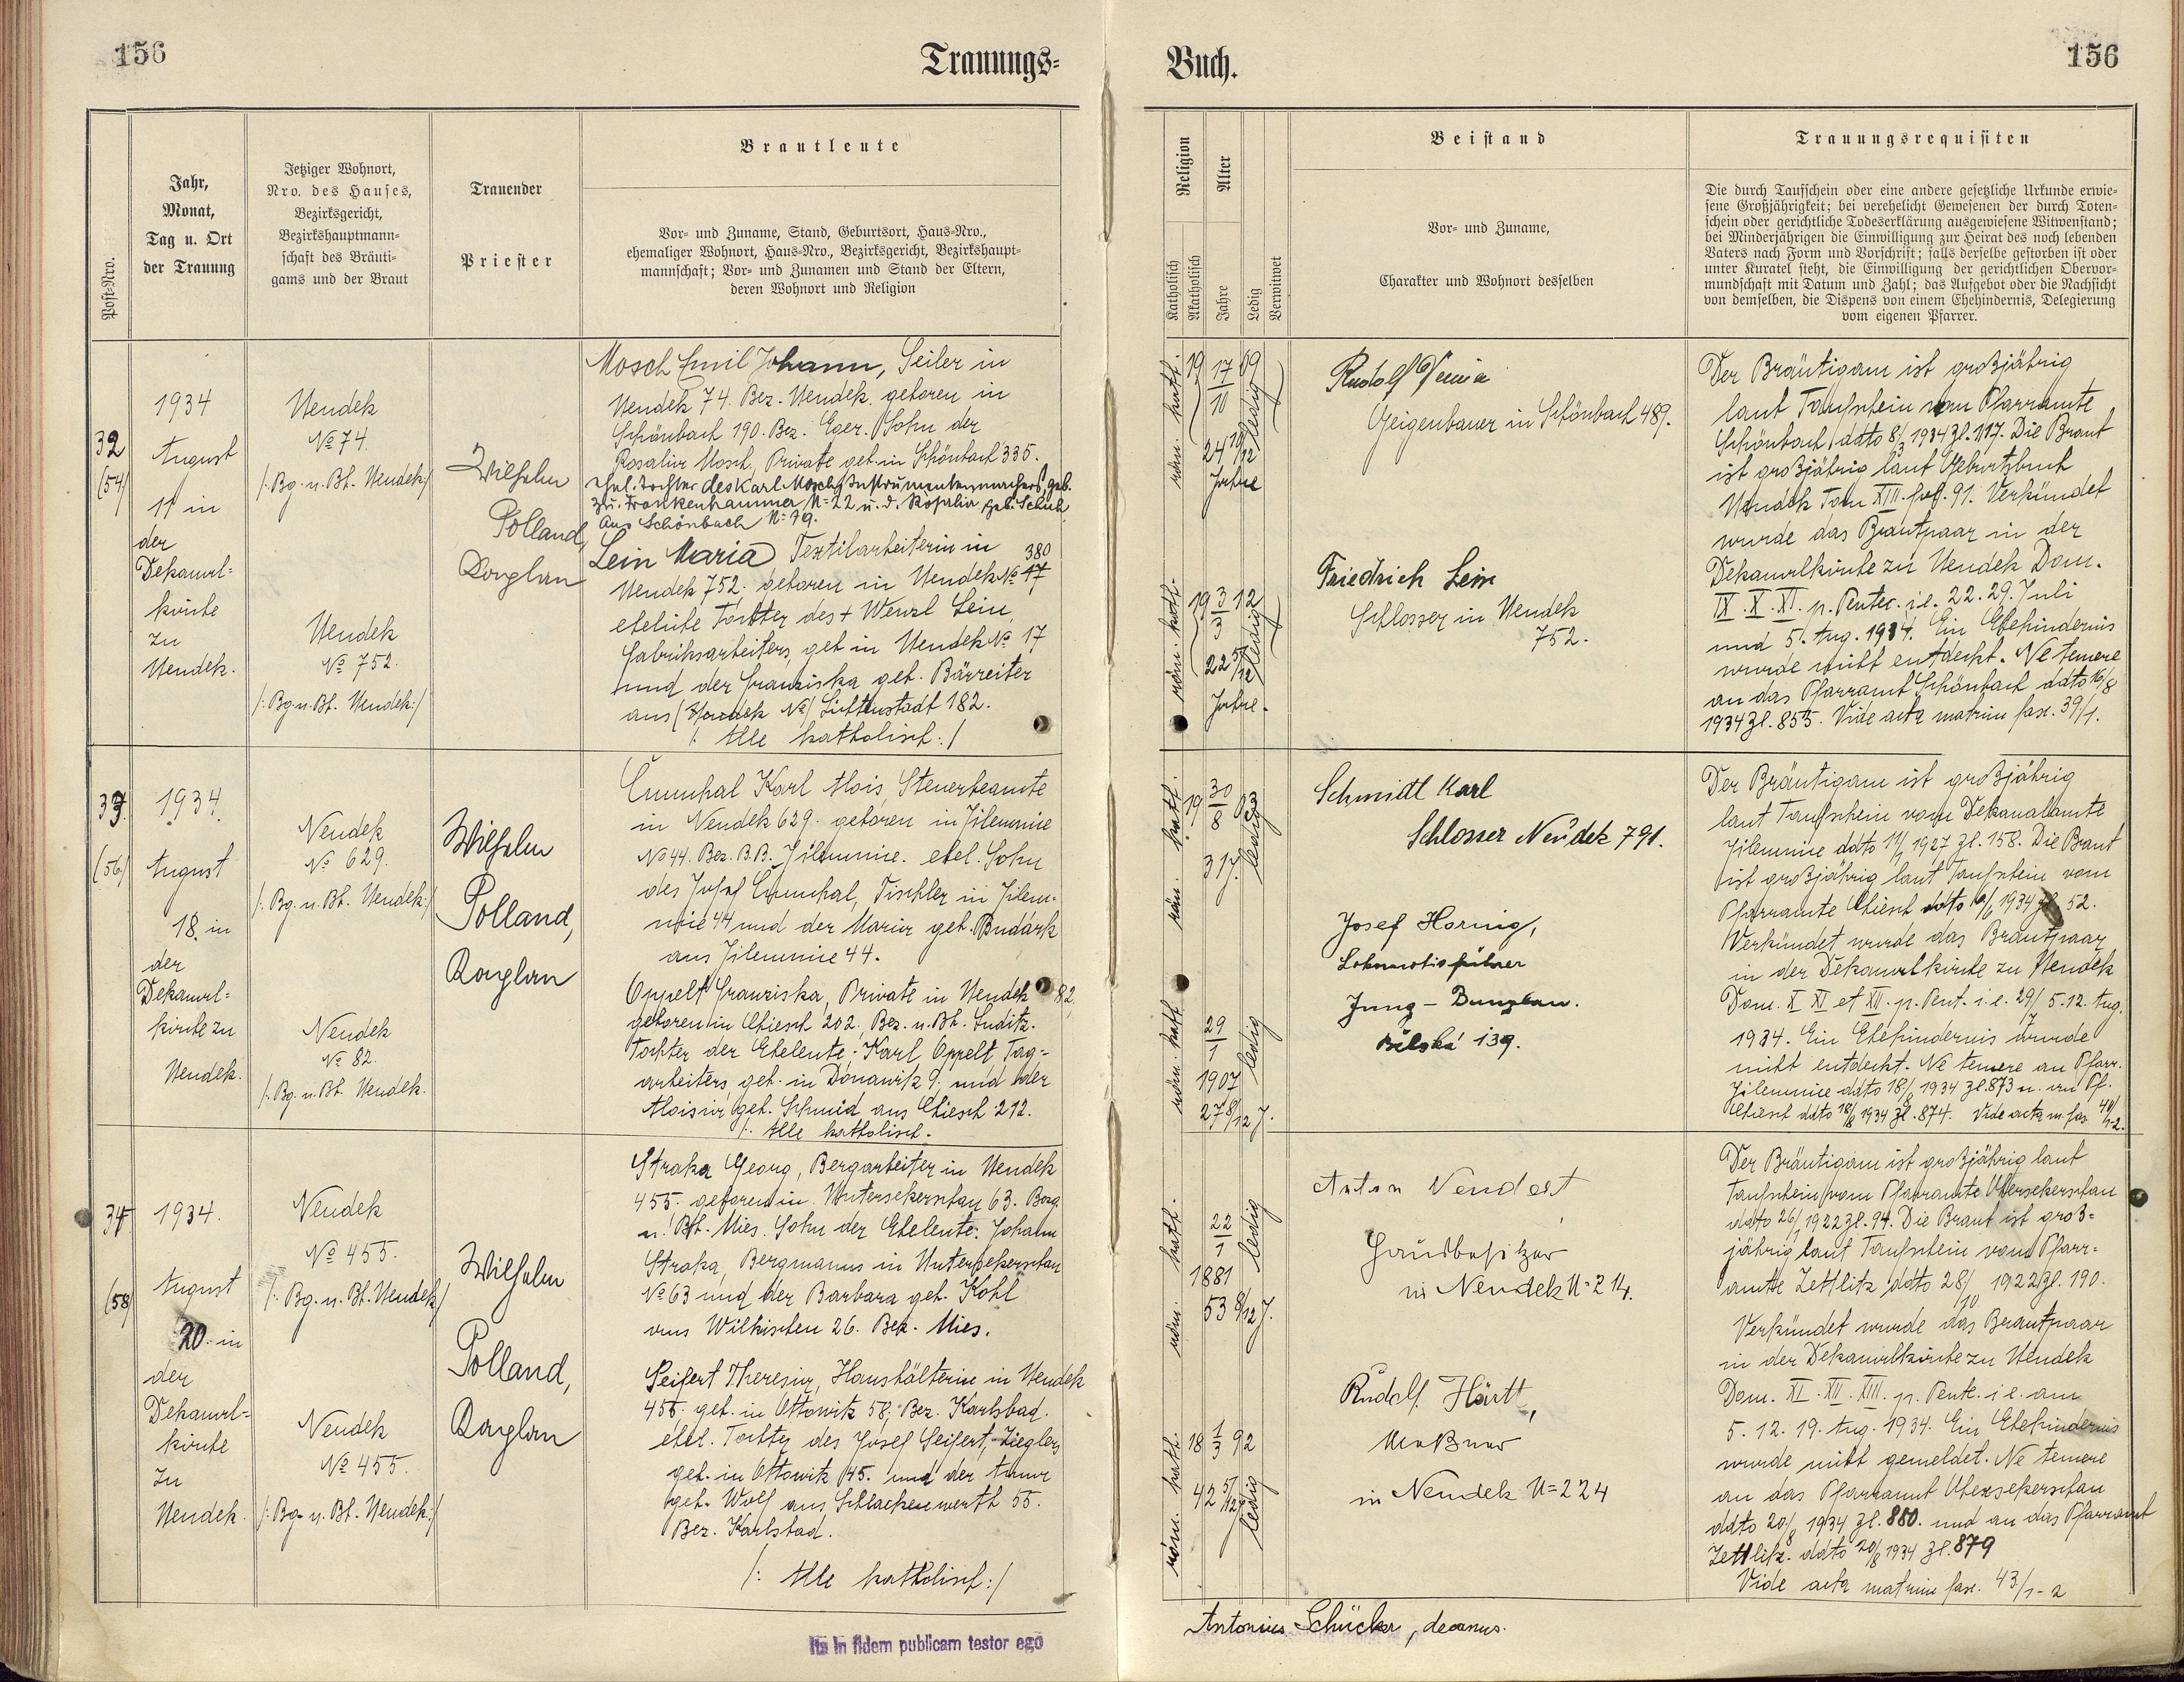 156
Trauungs=
Buch.
156
Post-Nro.
Jahr,
Monat,
Tag u. Ort
der Trauung
Jetziger Wohnort,
Nro. des Hauses,
Bezirksgericht,
Bezirkshauptmann-
schaft des Bräuti-
gams und der Braut
Trauender
Priester
Brautleute
Vor- und Zuname, Stand, Geburtsort, Haus-Nro.,
ehemaliger Wohnort, Haus-Nro., Bezirksgericht, Bezirkshaupt-
mannschaft; Vor- und Zunamen und Stand der Eltern,
deren Wohnort und Religion
Religion
Katholisch
Akatholisch
Alter
Jahre
Ledig
Verwitwet
Beistand
Vor- und Zuname,
Charakter und Wohnort desselben
Trauungsrequisiten
Die durch Taufschein oder eine andere gesetzliche Urkunde erwie-
sene Großjährigkeit; bei verehelicht Gewesenen der durch Toten-
schein oder gerichtliche Todeserklärung ausgewiesene Witwenstand;
bei Minderjährigen die Einwilligung zur Heirat des noch lebenden
Vaters nach Form und Vorschrift; falls derselbe gestorben ist oder
unter Kuratel steht, die Einwilligung der gerichtlichen Obervor-
mundschaft mit Datum und Zahl; das Aufgebot oder die Nachsicht
von demselben, die Dispens von einem Ehehindernis, Delegierung
vom eigenen Pfarrer.
32
(54)
1934
August
11 in
der
Dekanal=
kirche
zu
Neudek.
Neudek
No 74.
/: Bg. u. Bh. Neudek:/
Neudek
No 752.
/: Bg. u. Bh. Neudek:/
Wilhelm
Polland,
Kaplan
Mosch Emil Johann, Seiler in
Neudek 74. Bez. Neudek. geboren in
Schönbach 190. Bez. Eger. Sohn der
Rosalia Mosch, Private geb. in Schönbach 335.
ehel. Tochter des Karl Mosch, Instrumentenmachers, geb.
zu Frankenhammer N=22 u. d. Rosalia geb. Schuh
aus Schönbach N=79.
Lein Maria Textilarbeiterin in
380
Neudek 752. geboren in Neudek No 17
eheliche Tochter des + Wenzl Lein,
Fabriksarbeiters, geb. in Neudek No 17
und der Franziska geb. Bärreiter
aus (Neudek No) Lichtenstadt 182.
/: Alle katholisch :/
röm. kath.
19 17/10 09
24 10/12
Jahre
ledig
röm. kath.
19 3/3 12
22 5/12
Jahre.
ledig
Rudolf
Geigenbauer in Schönbach 489.
Friedrich Lein
Schlosser in Neudek
752.
Der Bräutigam ist großjährig
laut Taufschein vom Pfarramte
Schönbach ddto 8/3 1934 Zl. 117. Die Braut
ist großjährig laut Geburtsbuch
Neudek Tom XIII. fol. 91. Verkündet
wurde das Brautpaar in der
Dekanalkirche zu Neudek Dom.
IX. X. XI. p. Pentec. i.e. 22. 29. Juli
und 5. Aug. 1934. Ein Ehehindernis
wurde nicht entdeckt. Ne temere
an das Pfarramt Schönbach ddto 16/8
1934 Zl. 855. Vide acta matrim fasc. 39/1.
33
(56)
1934.
August
18. in
der
Dekanal=
kirche zu
Neudek.
Neudek
No 629.
/: Bg. u. Bh. Neudek:/
Neudek
No 82.
/: Bg. u. Bh. Neudek.
Wilhelm
Polland,
Kaplan
Karl Alois, Steuerbeamte
in Neudek 629. geboren in Jilemnice
No 44. Bez. B.B. Jilemnice. ehel. Sohn
des Josef Tischler in Jilem-
nice 44 und der Maria geb.
aus Jilemnice 44.
Oppelt Franziska, Private in Neudek 82,
geboren in Chiesch 202., Bez. u. Bh. Luditz.
Tochter der Eheleute: Karl Oppelt Tag=
arbeiters geb. in Donawitz 9. und der
Aloisia geb. Schmid aus Chiesch 212.
/: Alle katholisch.
röm. kath.
19 30/8 03
31 J.
ledig
röm. kath.
29/1
1907
27 8/12 J.
ledig
Schmidl Karl
Schlosser Neudek 791.
Josef Hornig,
Lokomotivführer
Jung-Bunzlau.
Bělská 139.
Der Bräutigam ist großjährig
laut Taufschein vom Dekanalamte
Jilemnice ddto 11/1 1927 Zl. 158. Die Braut
ist großjährig laut Taufschein vom
Pfarramte Chiesch ddto 1934 Zl. 52.
Verkündet wurde das Brautpaar
in der Dekanalkirche zu Neudek
Dom. X XI et XII. p. Pent. i.e. 29/7 5. 12. Aug.
1934. Ein Ehehindernis wurde
nicht entdeckt. Ne temere an Pfarr.
Jilemnice ddto 18/8 1934 Zl. 873 u. an Pf.
Chiesch ddto 18/8 1934 Zl. 874. Vide acta m. fas. 41/1-2.
34
(58)
1934.
August
20. in
der
Dekanal=
kirche
zu
Neudek.
Neudek
No 455.
/: Bg. u. Bh. Neudek/
Neudek
No 455.
/: Bg. u. Bh. Neudek:/
Wilhelm
Polland,
Kaplan
Straka Georg, Bergarbeiter in Neudek
455. geboren in Untersekerschan 63. Bezg.
u. Bh. Mies. Sohn der Eheleute: Johann
Straka, Bergmanns in Untersekerschan
No 63 und der Barbara geb. Kohl
aus Wilkischen 26. Bez. Mies.
Seifert Theresia, Haushälterin in Neudek
455. geb. in Ottowitz 58; Bez. Karlsbad.
ehel. Tochter des Josef Seifert, Zieglers
geb. in Ottowitz 45. und der Anna
geb. Wolf aus Schlackenwerth 55.
Bez. Karlsbad.
/: Alle katholisch :/
röm. kath.
22/1
1881
53 8/12 J.
ledig
röm. kath.
18 1/3 92
42 5/12 J.
ledig
Anton Vendort
Hausbesitzer
in Neudek N=214.
Rudolf Härtl,
Meßner
in Neudek N=224
Der Bräutigam ist großjährig laut
Taufschein vom Pfarramte Obersekerschan
ddto 26/1 1922 Zl. 94. Die Braut ist groß=
jährig laut Taufschein vom Pfarr=
amte Zettlitz ddto 28/10 1922 Zl. 190.
Verkündet wurde das Brautpaar
in der Dekanalkirche zu Neudek
Dom. XI. XII. XIII. p. Pente. i.e. am
5. 12. 19. Aug. 1934. Ein Ehehindernis
wurde nicht gemeldet. Ne temere
an das Pfarramt Obersekerschan
ddto 20/8 1934 Zl. 880. und an das Pfarramt
Zettlitz. ddto 20/8 1934 Zl. 879
Vide acta matrim fasc. 43/1-2
Ita in fidem publicam testor ego
Antonius Schücker, decanus.